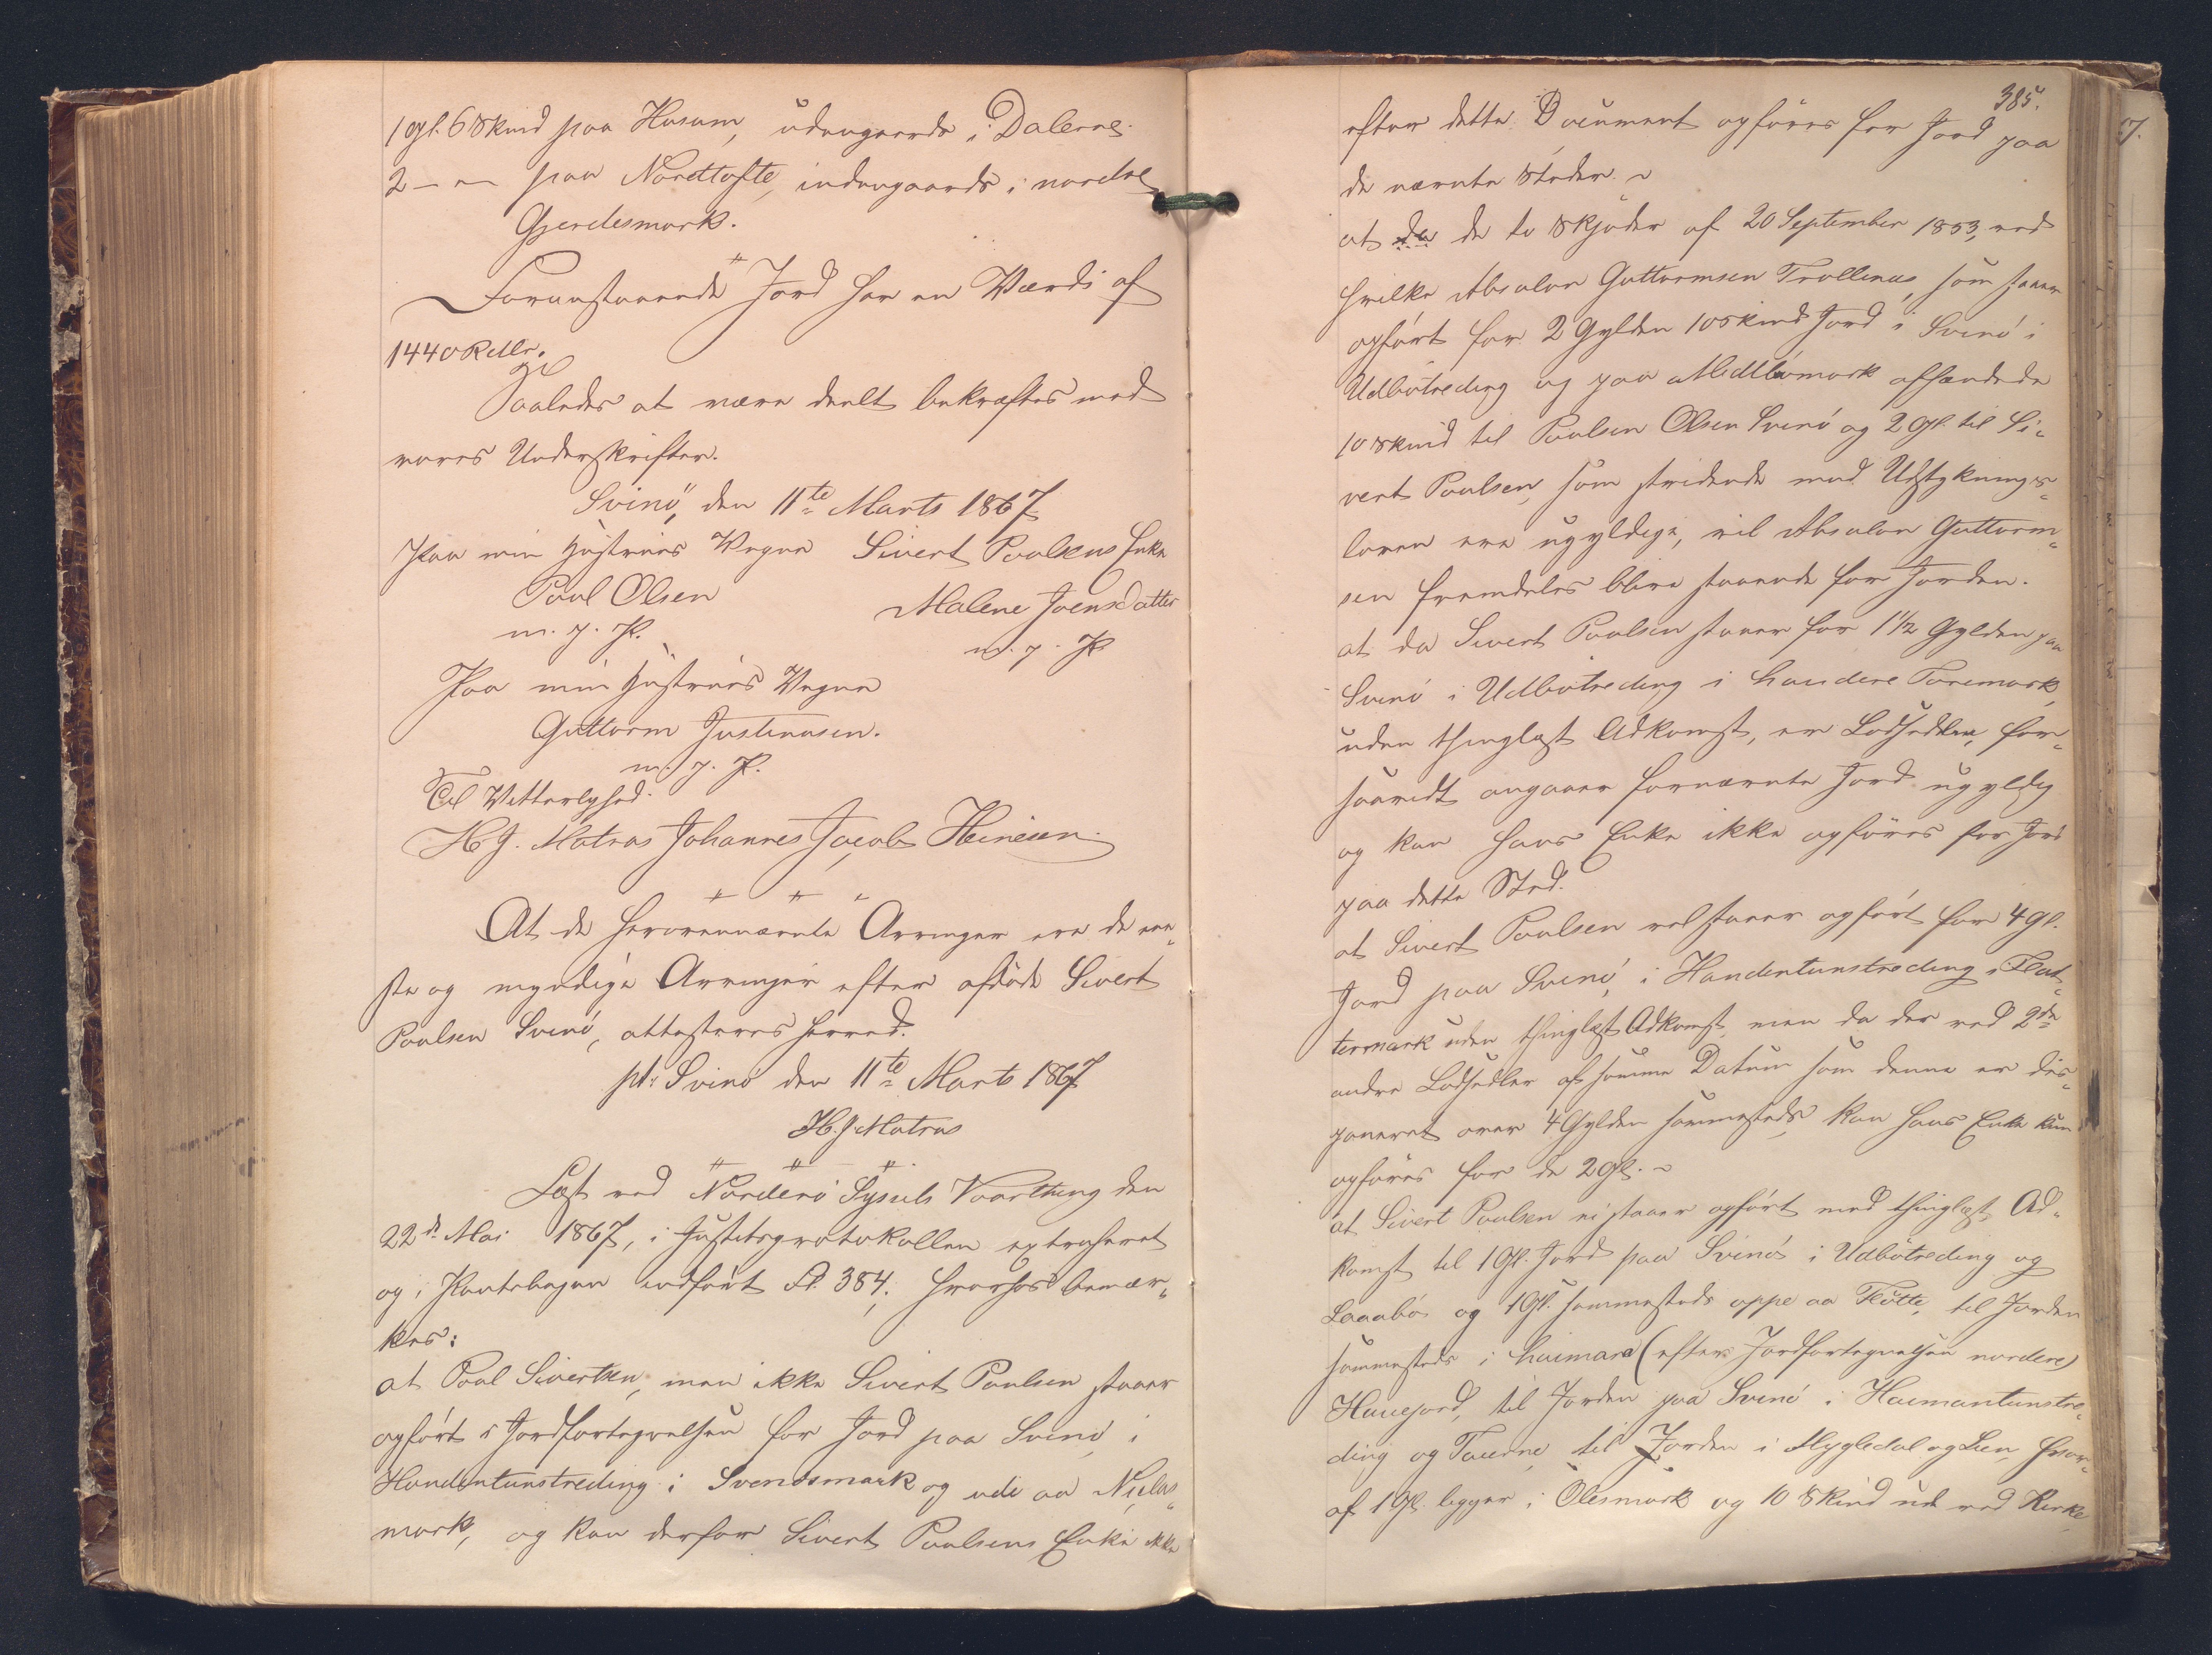 1 Gl. 6 Skind paa Husum, udengaards i Dalerne.
2 – " – paa Nordtofte, indengaards i nordre
Gjerdesmark.
Foranstaaende Jord har en Værdi af
1440 Rdlr.
Saaledes at være deelt bekræftes med
vores Underskrifter.
Svinö, den 11te Marts 1867
Paa min Hustrues Vegne Sivert Poulsens Enke
Poul Olsen Malene Joensdatter
m. p. P. m. p. P.
Paa min Hustrues Vegne
Guttorm Justinussen.
m. p. P.
Til Vitterlighed.
H. J. Matras Johannes Jacob Heinesen.
At de herovennævnte Arvinger ere de ene-
ste og myndige Arvinger efter afdöde Sivert
Poulsen Svinö, attesteres herved.
pt. Svinö den 11te Marts 1867
H. J. Matras
Læst ved Norderö Syssels Vaarthing den
22de Mai 1867, i Justitsprotokollen extraheret
og i Pantebogen indfört Fl. 384, hvorhos bemær-
kes:
at Poul Sivertsen, men ikke Sivert Poulsen staaer
opfört i Jordfortegnelsen for Jord paa Svinö i
Handentunstreding i Svendsmark og ude aa Nielas-
mark, og kan derfor Sivert Poulsens Enke ikke
385.
efter dette Document opföres for Jord paa
de nævnte Steder. –
at da de to Skjöder af 20 September 1853, ved
hvilke Absalon Guttormsen Trollenæs, som staaer
opfört for 2 Gylden 10 Skind Jord i Svinö i
Udbötreding og paa Midlömark afhændede
10 Skind til Poulsen Olsen Svinö og 2 Gl. til Si-
vert Poulsen, som stridende mod Udstyknings-
loven ere ugyldige, vil Absalon Guttorm-
sen fremdeles blive staaende for Jorden.
at da Sivert Poulsen staaer for 1 1/2 Gylden paa
Svinö i Udbötreding i handere Toremark,
uden thinglæst Adkomst, er Lodsedlen, for-
saavidt angaaer fornævnte Jord ugyldig
og kan hans Enke ikke opföres for Jord
paa dette Sted.
at Sivert Poulsen vel staaer opfört for 4 Gl.
Jord paa Svinö, i Handentunstreding i Flat-
termark uden thinglæst Adkomst, men da der ved 2de
andre Lodsedler af samme Datum som denne er dis-
poneret over 4 Gylden sammesteds, kan hans Enke kun
opföres for de 2 Gl. –
at Sivert Poulsen ei staaer opfört med thinglæst Ad-
komst til 1 Gl. Jord paa Svinö i Udbötreding og
Laaabö og 1 Gl. sammesteds oppe aa Flötte, til Jorden
sammesteds i heimara (efter Jordfortegnelsen nordere)
Hauejord, til Jorden paa Svinö i Heimantunstre-
ding og Tauerne, til Jorden i Mygledal og Lien, hvor-
af 1 Gl. ligger i Olesmark og 10 Skind ude ved Kirke